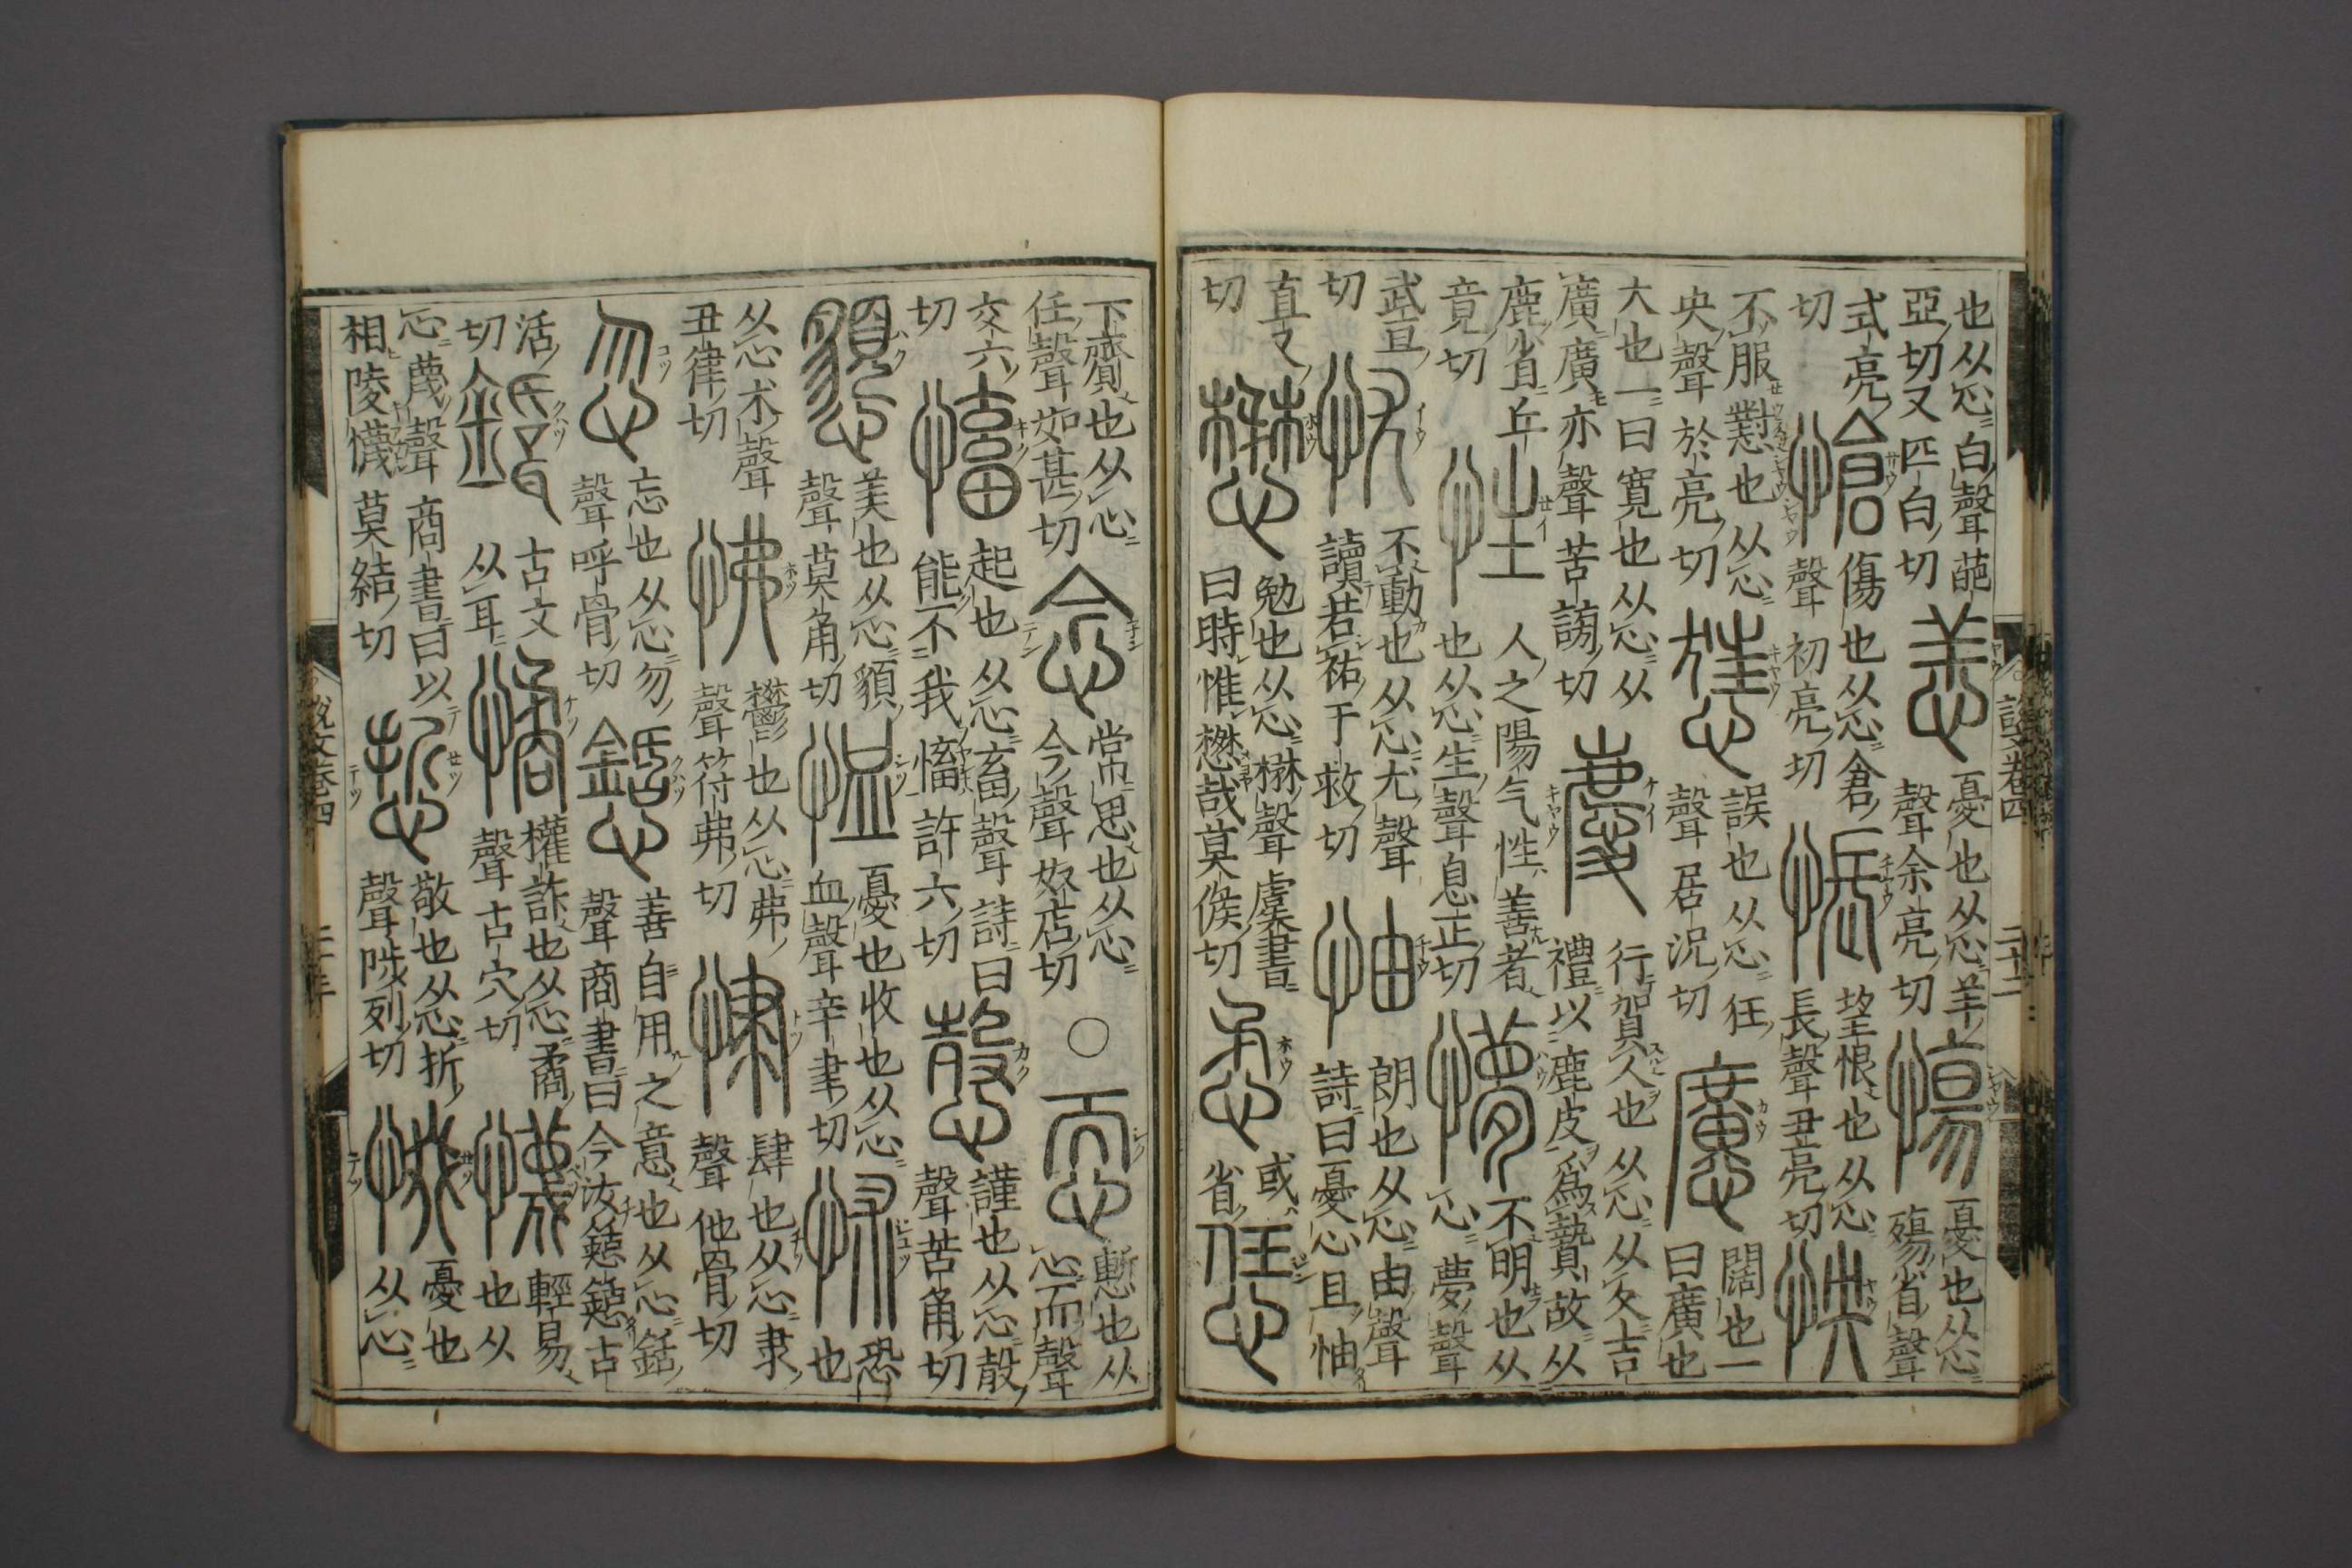 說文卷四　二十二
也从心白聲葩亞切又匹白切恙憂也从心羊聲余亮切慯憂也从心殤省聲
式亮切愴傷也从心倉聲初亮切悵望恨也从心長聲丑亮切怏
不服懟也从心央聲於亮切誤也从心狂聲居況切懬闊也一曰廣也
大也一曰寬也从心从廣廣亦聲苦謗切慶行賀人也从心从夊吉禮以鹿皮爲贄故从
鹿省丘竟切性人之陽气性善者也从心生聲息正切懜不明也从心夢聲
武亘切忧不動也从心尤聲讀若祐于救切怞朗也从心由聲詩曰憂心且怞
直又切懋勉也从心楙聲虞書曰時惟懋哉莫候切或省恁
下齎也从心任聲如甚切念常思也从心今聲奴店切○恧慙也从心而聲
六切慉起也从心畜聲詩曰能不我慉許六切愨謹也从心㱿聲苦角切
美也从心聲莫角切恤憂也收也从心血聲辛聿切怵恐也
从心朮聲丑律切怫鬱也从心弗聲符弗切肆也从心隶聲他骨切
忽忘也从心勿聲呼骨切善自用之意也从心銛聲商書曰今汝古
活切古文从耳憰權詐也从心矞聲古穴切懱輕易也从
心蔑聲商書曰以相陵懱莫結切悊敬也从心折聲陟列切惙憂也从心
說文卷四